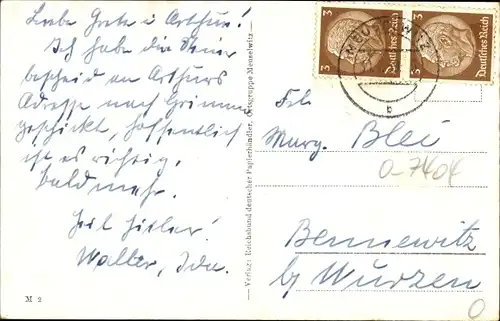 Liebe Grete u Arthur!
Ich habe die Steuer
bescheid an Arthurs
Adresse nach Grimma
geschickt, hoffentlich
ist es richtig,
bald mehr.
Heil Hitler!
Walter, Ida.
M 2
Verlag: Reichsbund deutscher Papierhändler, Ortsgruppe Meuselwitz
3 Deutsches Reich
3 Deutsches Reich
b
Frl.
Marg. Blei
0-7404
Bennewitz
by Wurzen